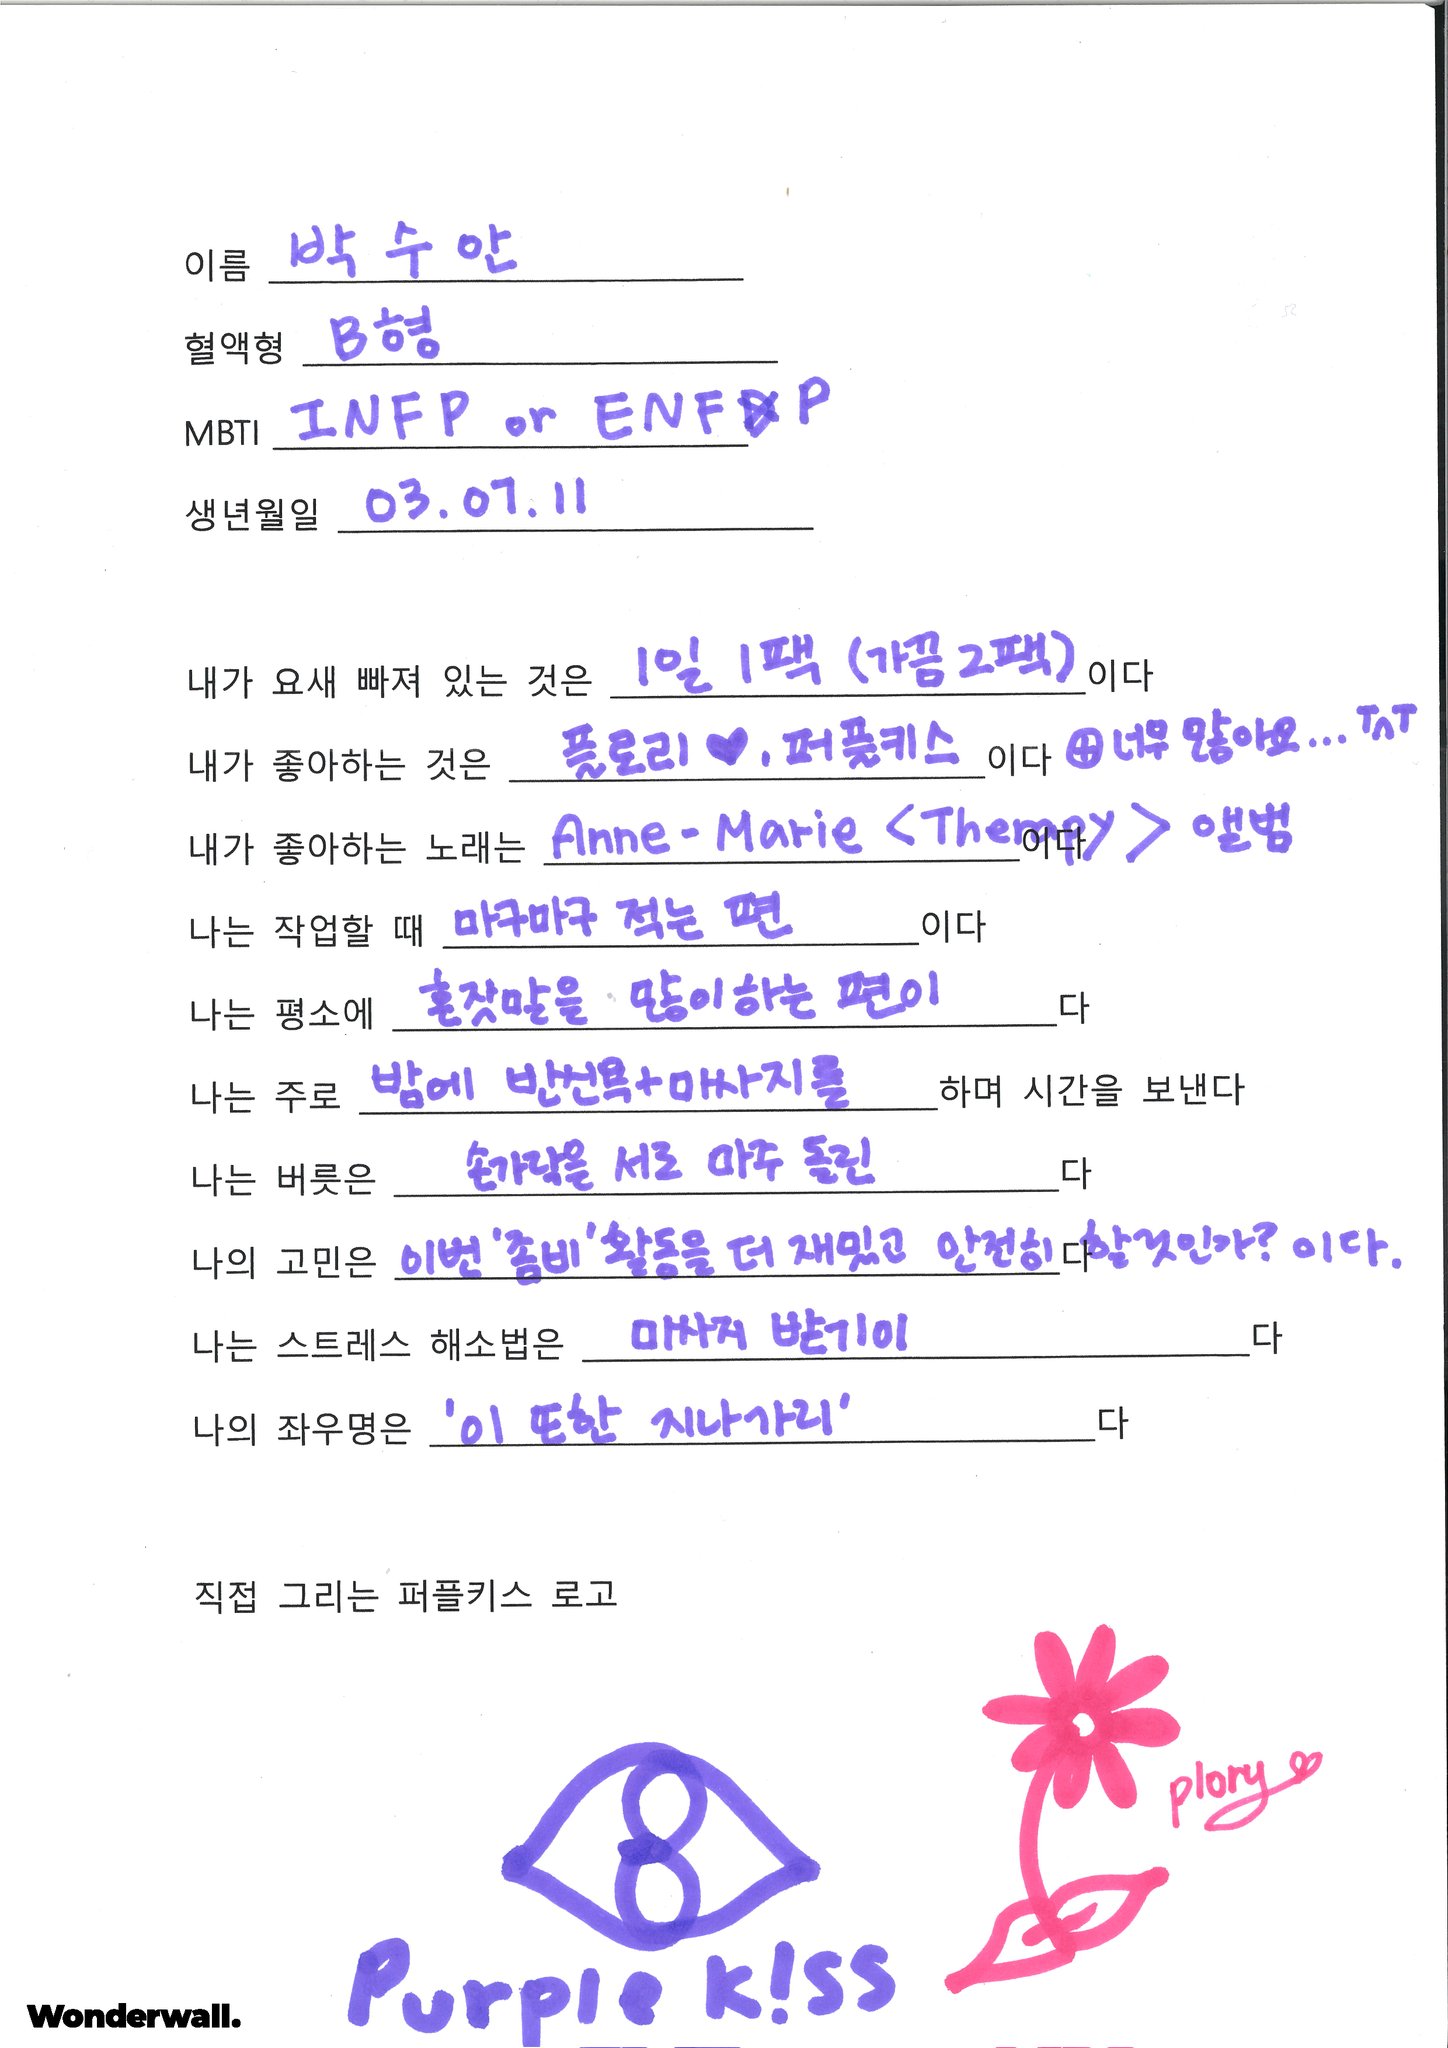 이름 박수안
혈액형 B형
MBTI INFP or ENFP
생년월일 03.07.11
내가 요새 빠져 있는 것은 1일 1팩 (가끔 2팩) 이다
내가 좋아하는 것은 플로리♥, 퍼플키스 이다 ⊕ 너무 많아요... ㅜㅅㅜ
내가 좋아하는 노래는 Anne-Marie <Therapy> 앨범 이다
나는 작업할 때 마구마구 적는 편 이다
나는 평소에 혼잣말을 많이하는 편이 다
나는 주로 밤에 반신욕+마사지를 하며 시간을 보낸다
나는 버릇은 손가락을 서로 마주 돌린 다
나의 고민은 이번 '좀비' 활동을 더 재밌고 안전히 다 할 것인가? 이다.
나는 스트레스 해소법은 마사지 받기이 다
나의 좌우명은 '이 또한 지나가리' 다
직접 그리는 퍼플키스 로고
plory
Purple K!ss
Wonderwall.